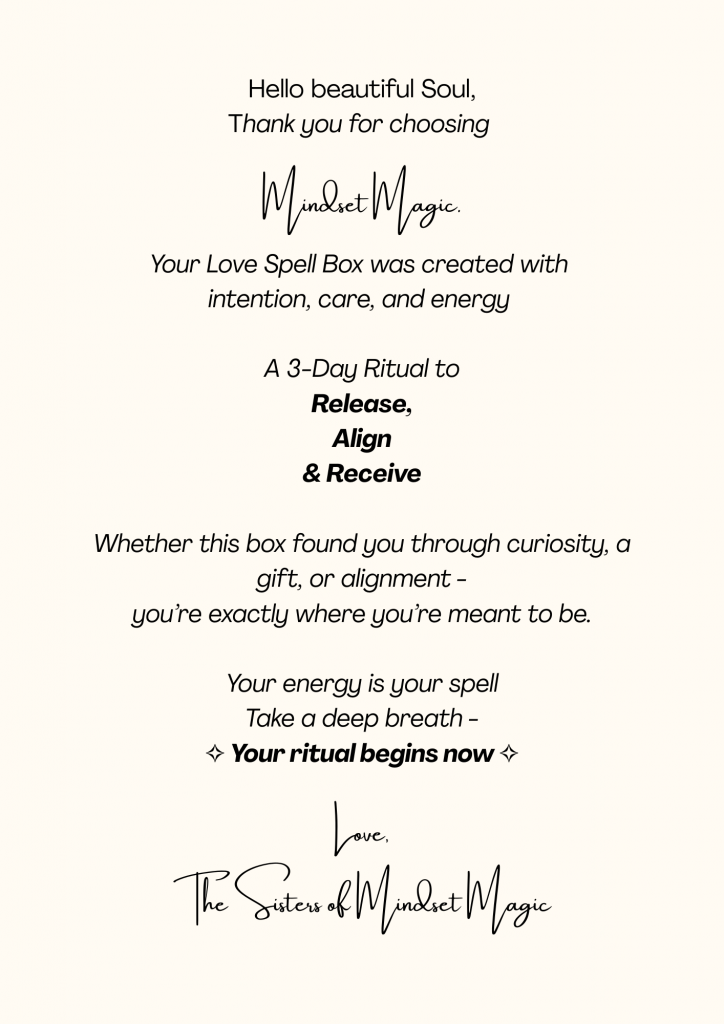 Hello beautiful Soul,
Thank you for choosing
Mindset Magic.
Your Love Spell Box was created with
intention, care, and energy
A 3-Day Ritual to
Release,
Align
& Receive
Whether this box found you through curiosity, a
gift, or alignment -
you’re exactly where you’re meant to be.
Your energy is your spell
Take a deep breath -
✧ Your ritual begins now ✧
Love,
The Sisters of Mindset Magic